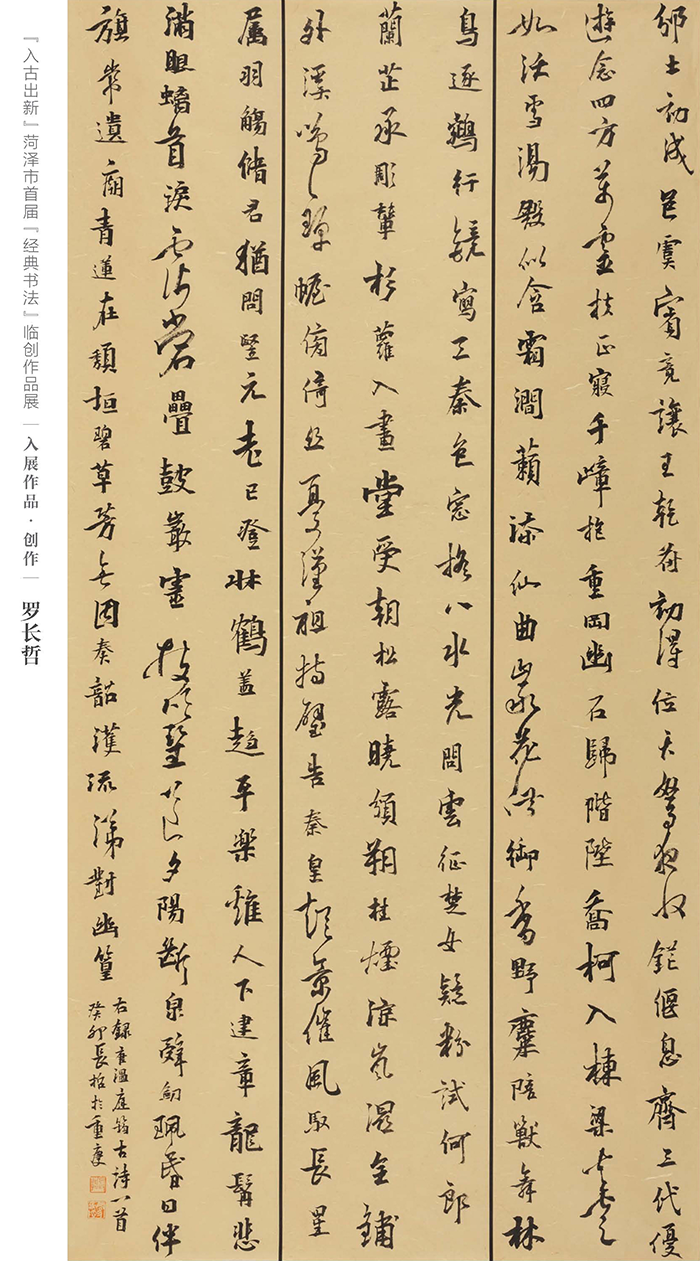 邠土初成邑虞賓竟讓王乾符初得位天弩夜收鋩偃息齊三代優
遊念四方萬靈扶正寢千嶂抱重岡幽石歸階陛喬柯入棟梁火雲
如沃雪湯殿似含霜澗籟添仙曲巖花借御香野麋陪獸舞林
鳥逐鵷行鏡寫三秦色窓摇八水光問雲征楚女疑粉試何郎
蘭芷承彫輦杉蘿入畫堂受朝松露曉頒朔桂煙涼嵐濕金鋪
外溪鳴錦幄傍倚絲憂漢祖持璧告秦皇短景催風馭長星
屬羽觴儲君猶問竪元老已登牀鶴蓋趨平樂雞人下建章龍髯悲
滿眼螭首淚霑裳疊鼓嚴靈仗吹笙送夕陽斷泉辭劍珮昏日伴
旗常遺廟青蓮在頹垣碧草芳無因奏韶濩流涕對幽篁
右録唐溫庭筠古詩一首
癸卯長哲於重慶
『入古出新』菏泽市首届『经典书法』临创作品展｜入展作品·创作｜罗长哲